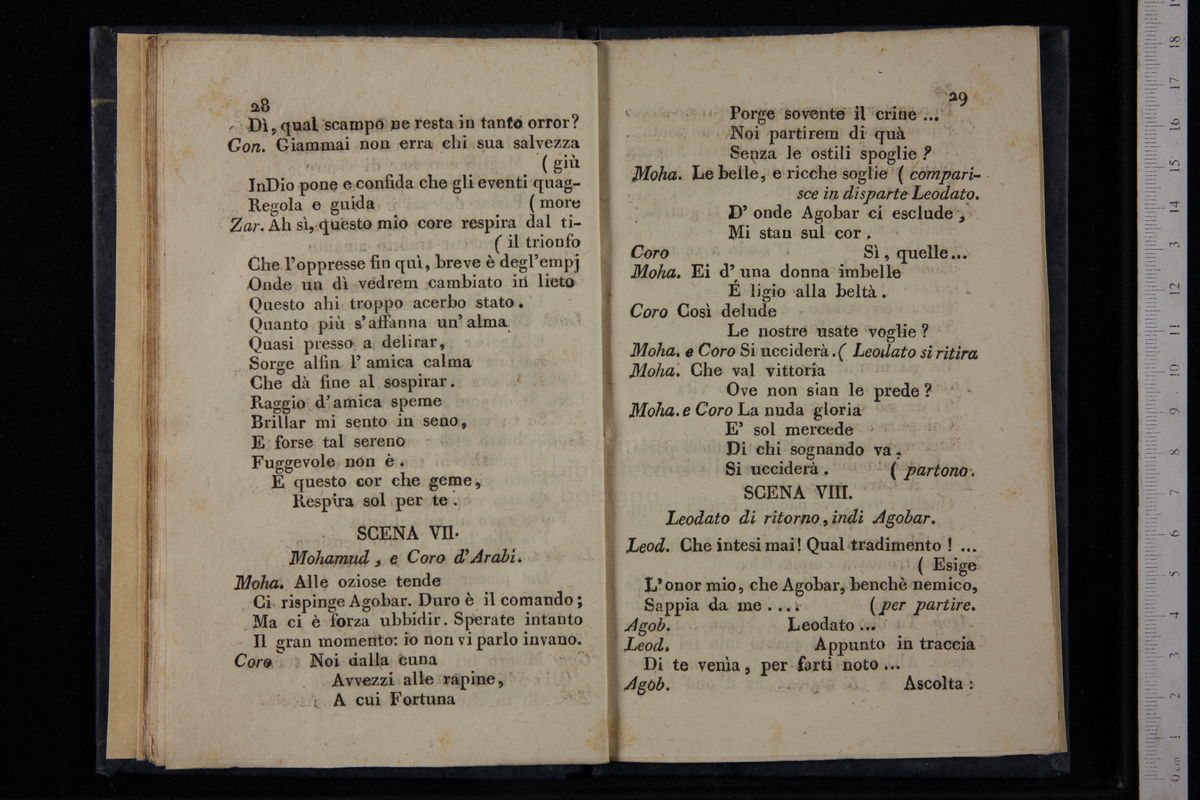 28
Dì, qual scampo ne resta in tanto orror?
Gon. Giammai non erra chi sua salvezza
( giù
InDio pone e confida che gli eventi quag-
Regola e guida ( more
Zar. Ah sì, questo mio core respira dal ti-
( il trionfo
Che l'oppresse fin quì, breve è degl'empj
Onde un dì vedrem cambiato in lieto
Questo ahi troppo acerbo stato.
Quanto più s'affanna un' alma
Quasi presso a delirar,
Sorge alfin l' amica calma
Che dà fine al sospirar.
Raggio d'amica speme
Brillar mi sento in seno,
E forse tal sereno
Fuggevole non è.
E questo cor che geme,
Respira sol per te.
SCENA VII.
Mohamud, e Coro d'Arabi.
Moha. Alle oziose tende
Ci rispinge Agobar. Duro è il comando;
Ma ci è forza ubbidir. Sperate intanto
Il gran momento: io non vi parlo invano.
Coro Noi dalla cuna
Avvezzi alle rapine,
A cui Fortuna
29
Porge sovente il crine ...
Noi partirem di quà
Senza le ostili spoglie ?
Moha. Le belle, e ricche soglie ( compari-
sce in disparte Leodato.
D' onde Agobar ci esclude,
Mi stan sul cor.
Coro Sì, quelle...
Moha. Ei d' una donna imbelle
É ligio alla beltà.
Coro Così delude
Le nostre usate voglie ?
Moha. e Coro Si ucciderà. ( Leodato si ritira
Moha. Che val vittoria
Ove non sian le prede ?
Moha. e Coro La nuda gloria
E' sol mercede
Di chi sognando va.
Si ucciderà. ( partono.
SCENA VIII.
Leodato di ritorno, indi Agobar.
Leod. Che intesi mai! Qual tradimento ! ...
( Esige
L'onor mio, che Agobar, benchè nemico,
Sappia da me .... (per partire.
Agob. Leodato ...
Leod. Appunto in traccia
Di te venìa, per farti noto ...
Agob. Ascolta :